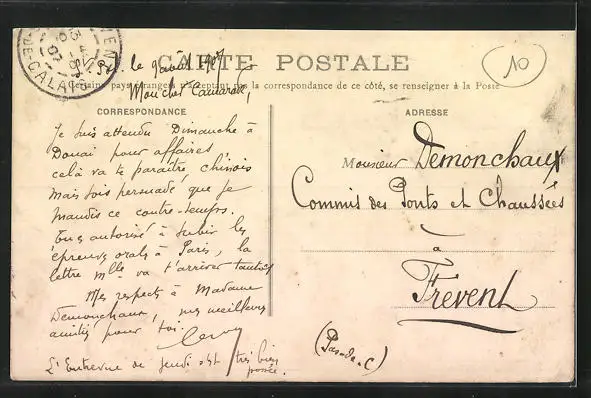 CARTE POSTALE
le 9 août 1907
pays étrangers n'acceptant pas la correspondance de ce côté, se renseigner à la Poste
Mon cher Camarade,
CORRESPONDANCE
Je suis attendu Dimanche à
Douai pour affaires,
celà va te paraître chinois
mais sois persuadé que je
maudis ce contre-temps.
Tu es autorisé à subir les
épreuves orales à Paris, la
lettre mlle va t'arriver tantôt
Mes respects à Madame
Demonchaux, mes meilleures
amitiés pour toi.
L'Entrevue de jeudi est très bien
passée.
10
ADRESSE
Monsieur Demonchaux
Commis des Ponts et Chaussées
à
Frévent
(Pas-de-C)
DE-CALAIS